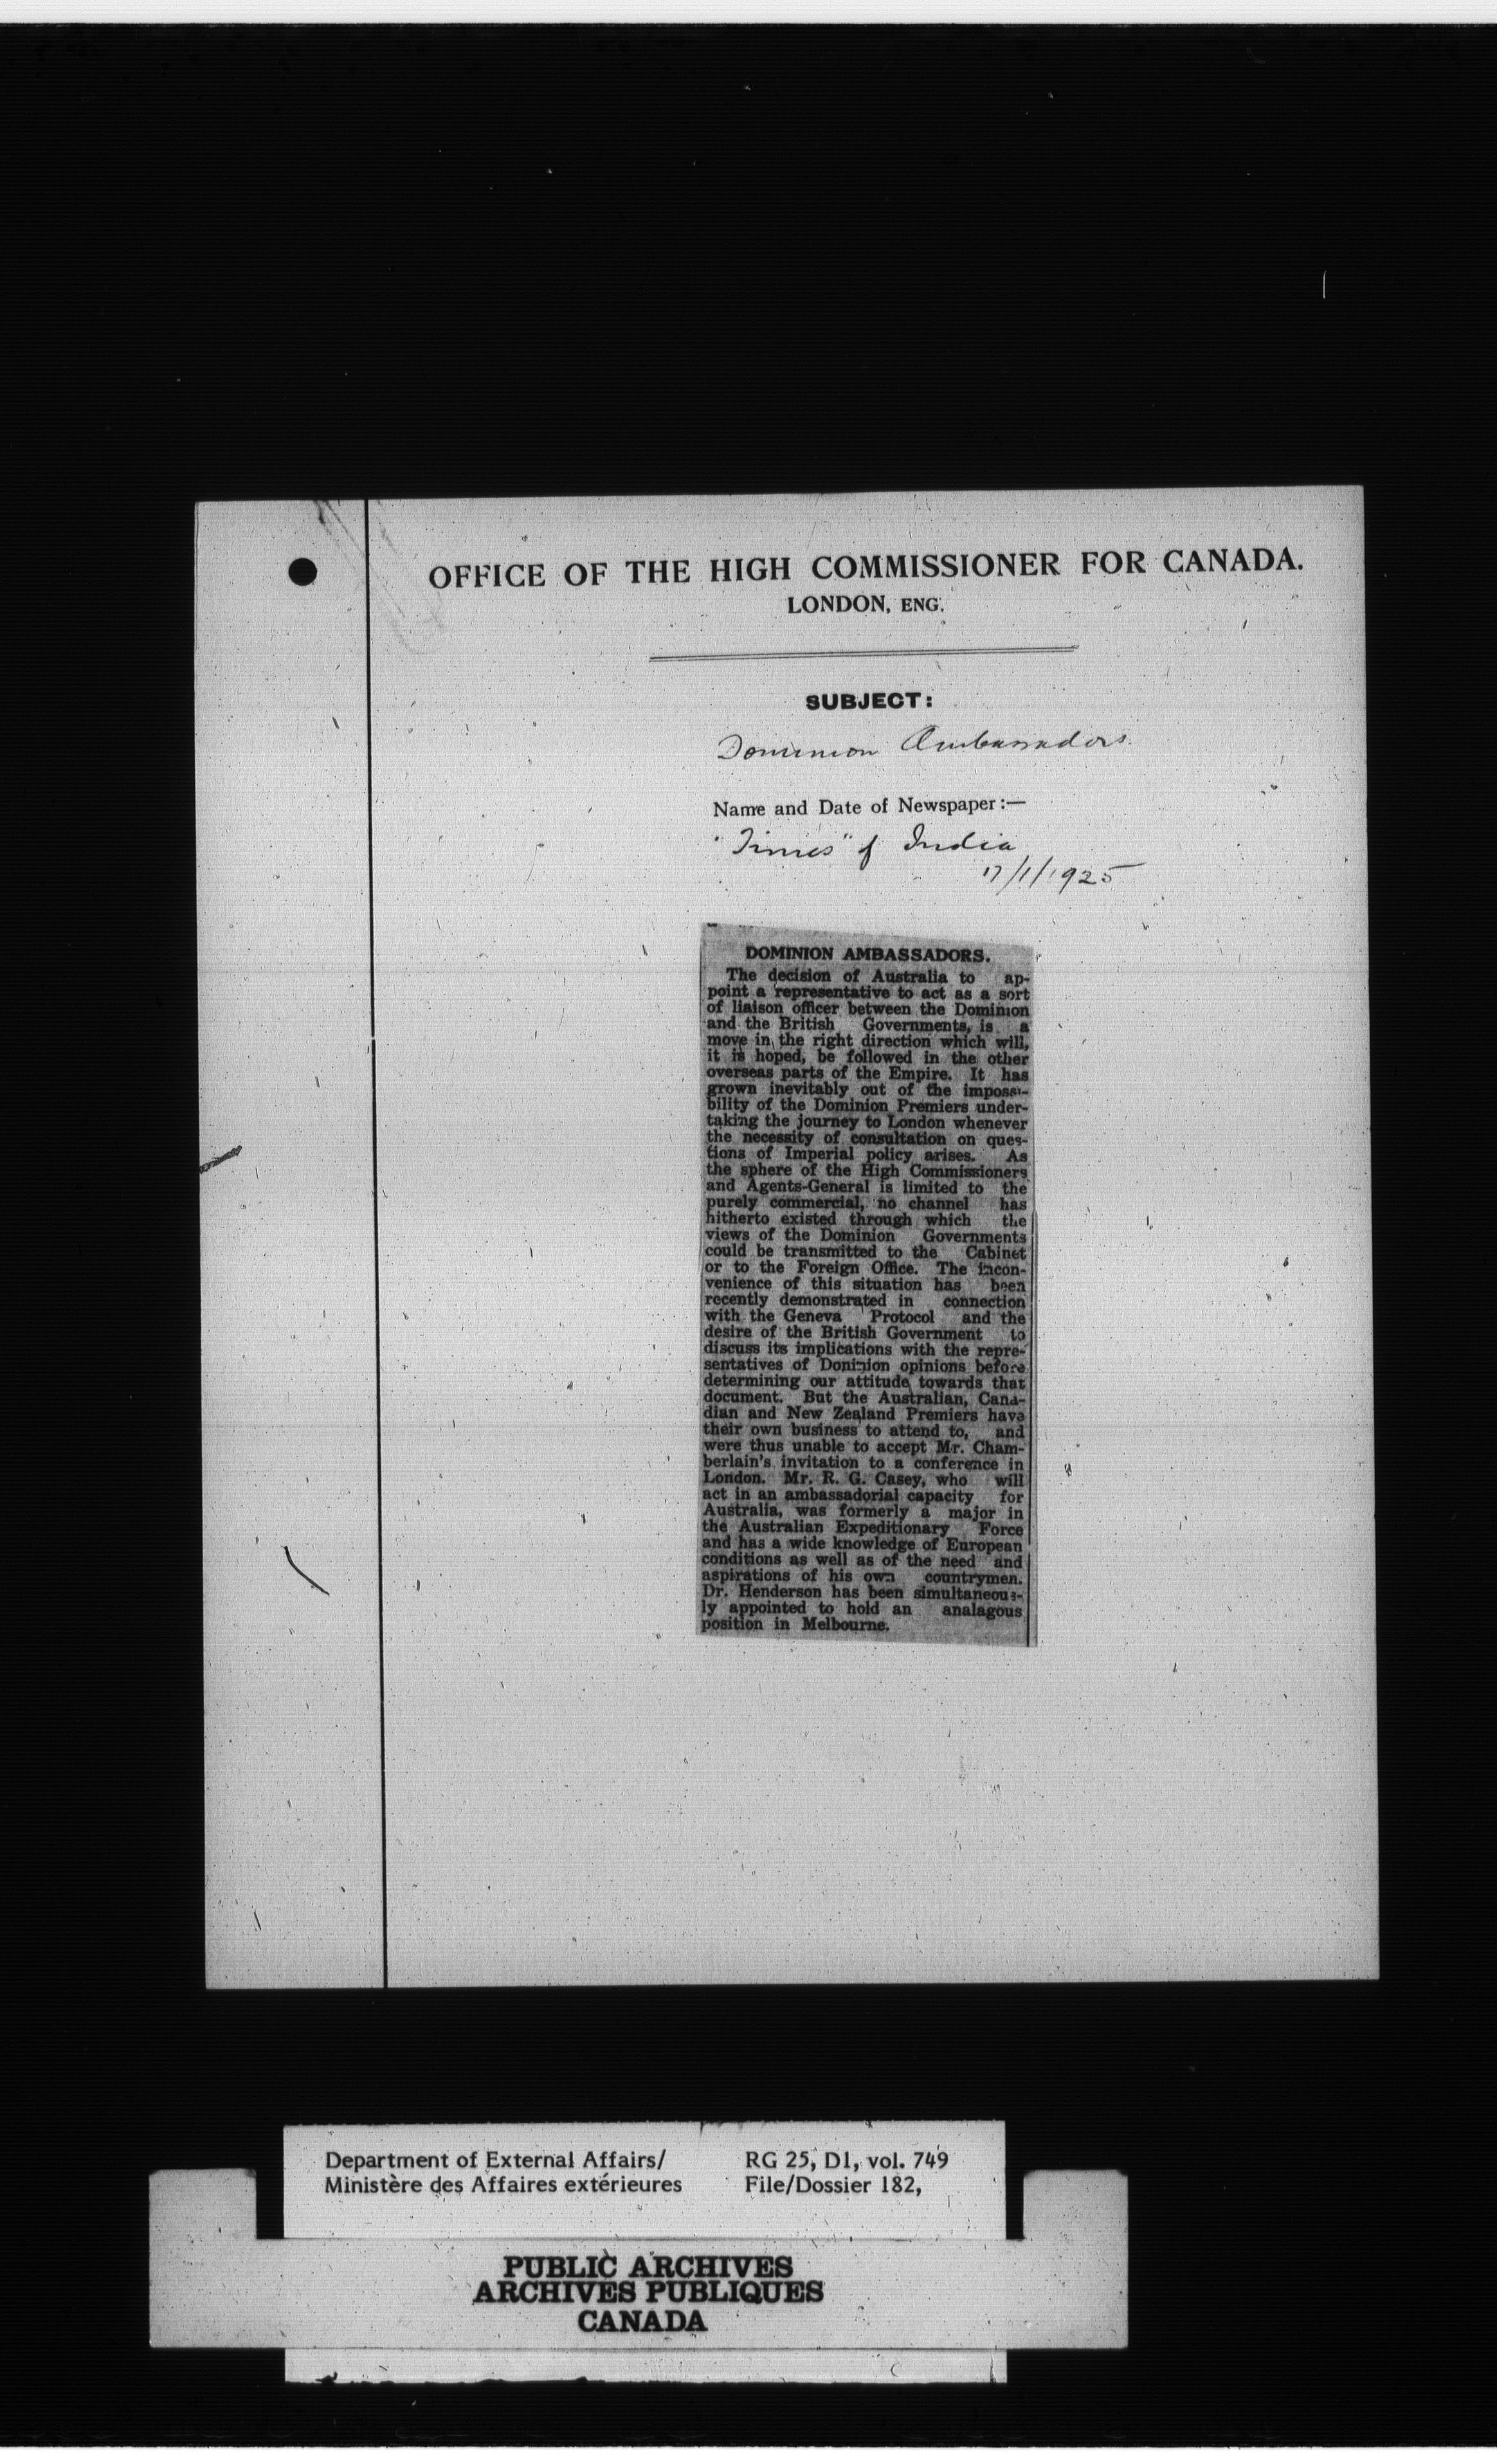 OFFICE OF THE HIGH COMMISSIONER FOR CANADA.
LONDON, ENG.
SUBJECT:
Dominion Ambassadors.
Name and Date of Newspaper:—
"Times" of India
17/1/1925
DOMINION AMBASSADORS.
The decision of Australia to ap-
point a representative to act as a sort
of liaison officer between the Dominion
and the British Governments, is a
move in the right direction which will,
it is hoped, be followed in the other
overseas parts of the Empire. It has
grown inevitably out of the impossi-
bility of the Dominion Premiers under-
taking the journey to London whenever
the necessity of consultation on ques-
tions of Imperial policy arises. As
the sphere of the High Commissioners
and Agents-General is limited to the
purely commercial, no channel has
hitherto existed through which the
views of the Dominion Governments
could be transmitted to the Cabinet
or to the Foreign Office. The incon-
venience of this situation has been
recently demonstrated in connection
with the Geneva Protocol and the
desire of the British Government to
discuss its implications with the repre-
sentatives of Dominion opinions before
determining our attitude towards that
document. But the Australian, Cana-
dian and New Zealand Premiers have
their own business to attend to, and
were thus unable to accept Mr. Cham-
berlain's invitation to a conference in
London. Mr. R. G. Casey, who will
act in an ambassadorial capacity for
Australia, was formerly a major in
the Australian Expeditionary Force
and has a wide knowledge of European
conditions as well as of the need and
aspirations of his own countrymen.
Dr. Henderson has been simultaneous-
ly appointed to hold an analagous
position in Melbourne.
Department of External Affairs/
Ministère des Affaires extérieures
RG 25, D1, vol. 749
File/Dossier 182,
PUBLIC ARCHIVES
ARCHIVES PUBLIQUES
CANADA